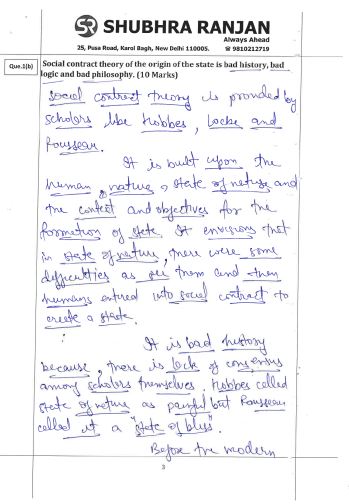 SR SHUBHRA RANJAN
Always Ahead
25, Pusa Road, Karol Bagh, New Delhi 110005. ☎ 9810212719
Que.1(b) Social contract theory of the origin of the state is bad history, bad
logic and bad philosophy. (10 Marks)
Social contract theory is provided by
scholars like Hobbes, Locke and
Rousseau.
It is built upon the
human nature, state of nature and
the context and objectives for the
formation of state. It envisions that
in state of nature, there were some
difficulties as per them and then
humans entered into social contract to
create a state.
It is bad history
because, there is lack of consensus
among scholars themselves. Hobbes called
state of nature as painful but Rousseau
called it a "state of bliss".
Before the modern
3